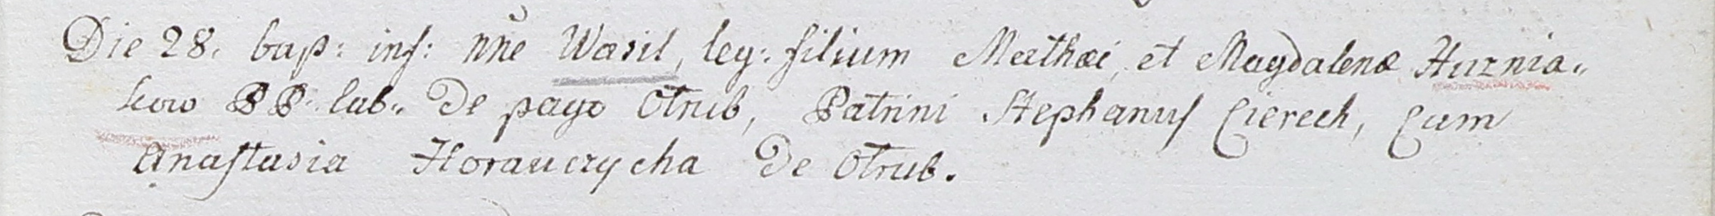 Die 28. bap: inf: nne Wasil, leg: filium Matthæi, et Magdalenæ Huznia„
kow PP. lab„ De pago Otrub, Patrini Stephanus Cierech, Cum
Anastasia Horauczycha De Otrub.